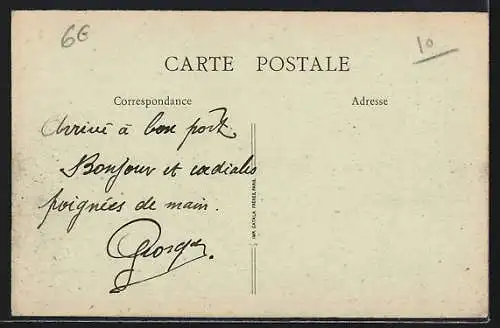 6€
10
CARTE POSTALE
Correspondance
Adresse
Arrivé à bon port.
Bonjour et cordiales
poignées de main.
Georges.
IMP. CATALA FRÈRES, PARIS